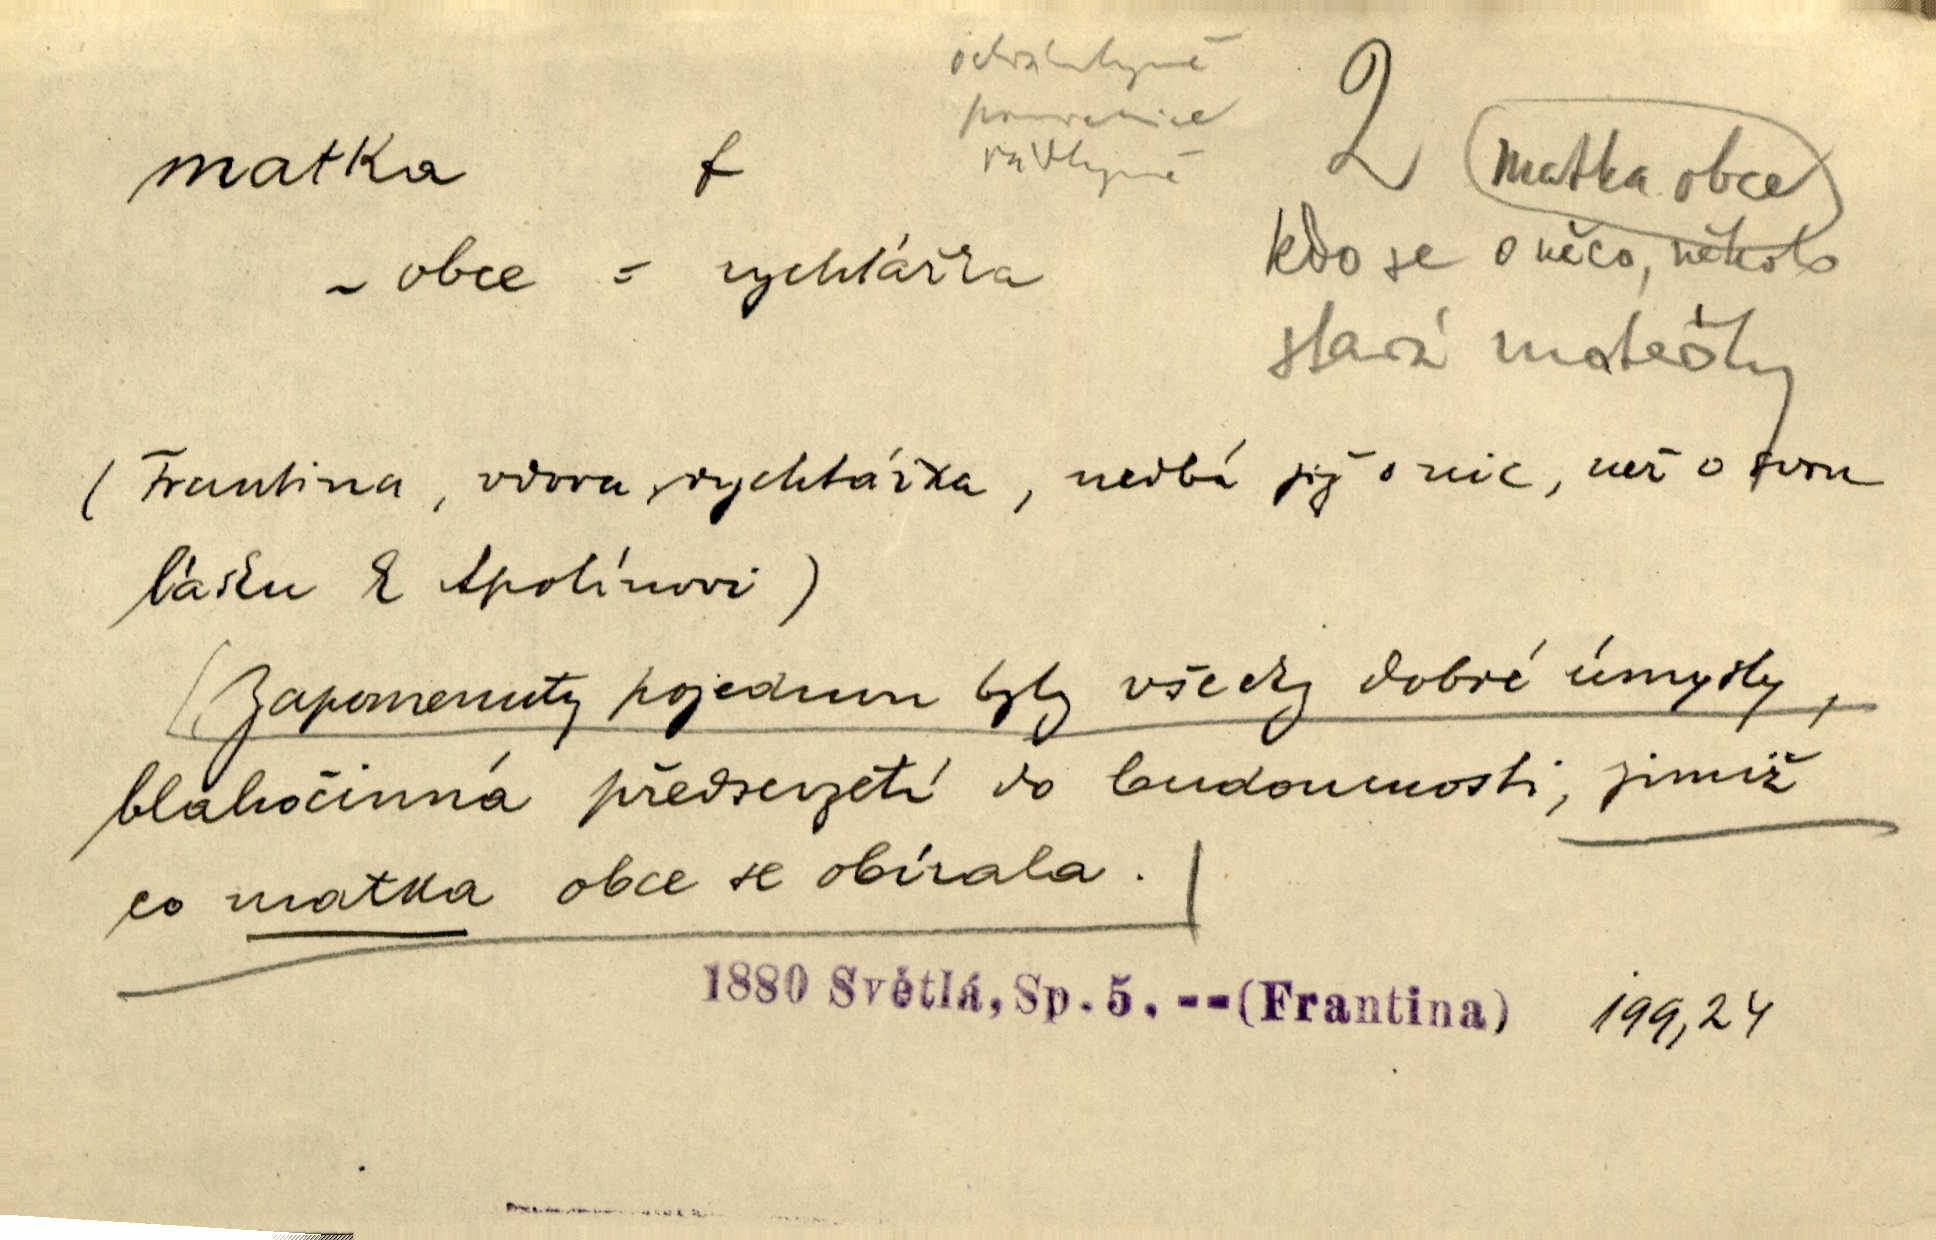 ochránkyně
pomocnice
rádkyně
2
matka f
matka obce
~ obce = rychtářka
kdo se o něco, někoho
stará mateřsky
(Frantina, vdova, rychtářka, nedbá již o nic, než o svou
lásku k Apolínovi)
Zapomenuty pojednou byly všecky dobré úmysly,
blahočinná předsevzetí do budoucnosti, jimiž
co matka obce se obírala.
1880 Světlá, Sp. 5. -- (Frantina) 199,24